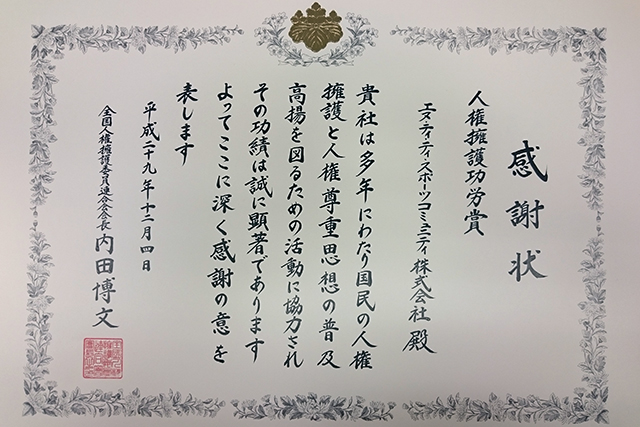 感謝状
人権擁護功労賞
エヌ・ティ・ティ・スポーツコミュニティ株式会社 殿
貴社は多年にわたり国民の人権
擁護と人権尊重思想の普及
高揚を図るための活動に協力され
その功績は誠に顕著であります
よってここに深く感謝の意を
表します
平成二十九年十二月四日
全国人権擁護委員連合会会長 内田博文